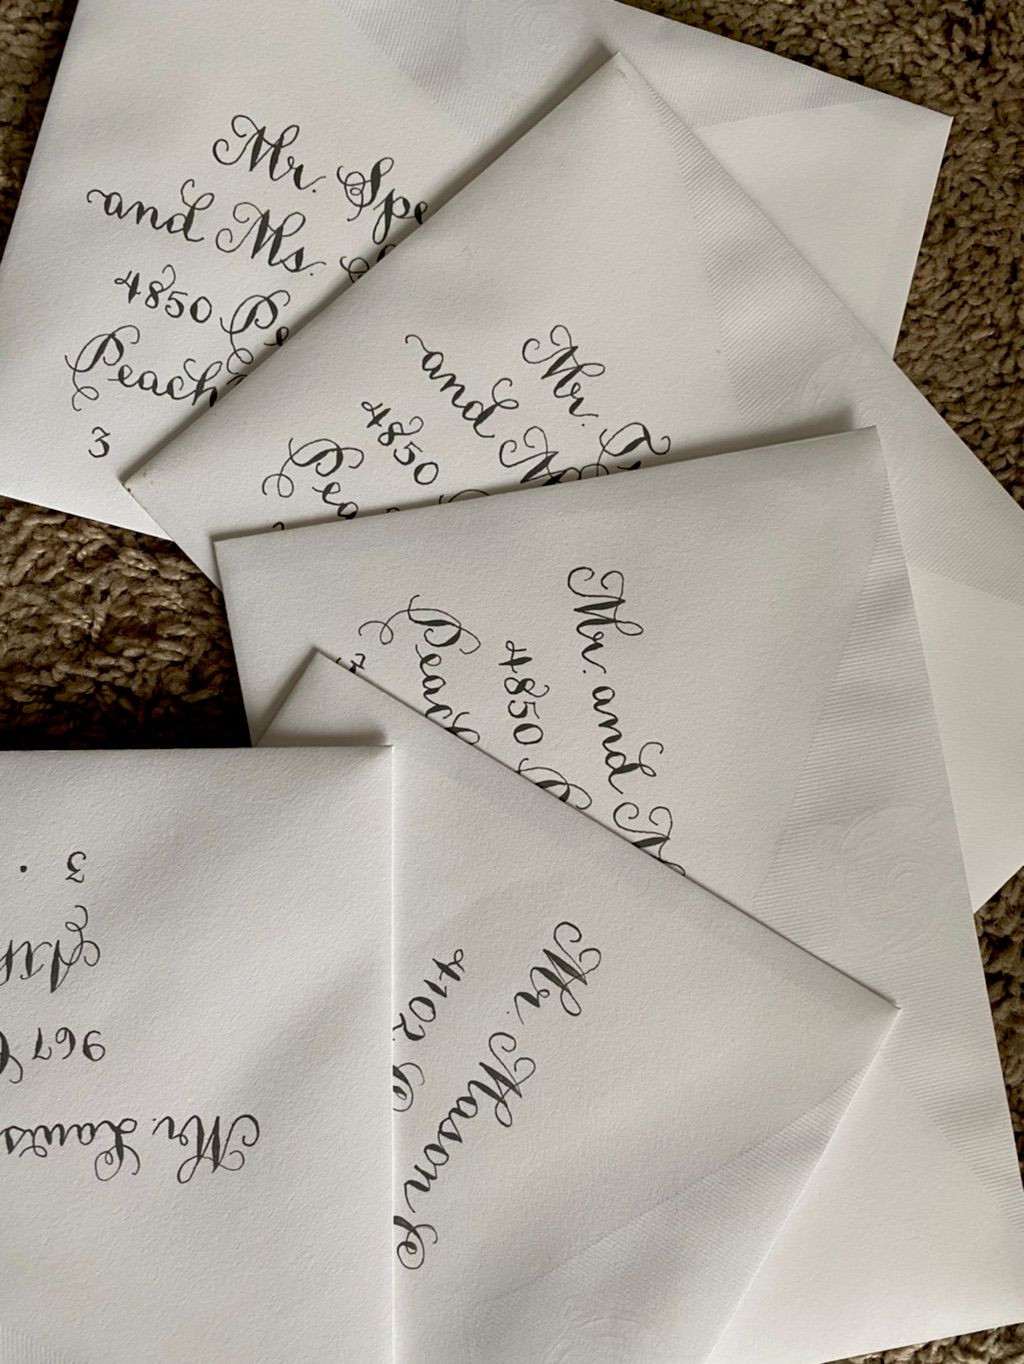 Mr. Spe
and Ms.
4850 Pe
Peach
3
Mr. Tr
and M
4850
Pea
Mr. and M
4850 P
Peach
3
Mr. Mason
4102
Mr. Laws
967
Atl
3